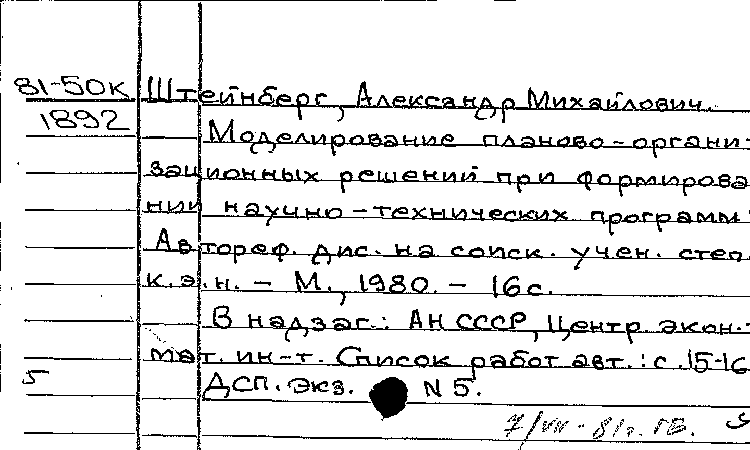 81-50к Штейнберг, Александр Михайлович.
1892 Моделирование планово-органи-
зационных решений при формирова
нии научно-технических программ:
Автореф. дис. на соиск. учен. степ.
к.э.н. - М., 1980. - 16 с.
В надзаг.: АН СССР, Центр. экон.-
мат. ин-т. Список работ авт.: с. 15-16
5 ДСП. Экз. N 5.
7/VII-81г. ГБ.